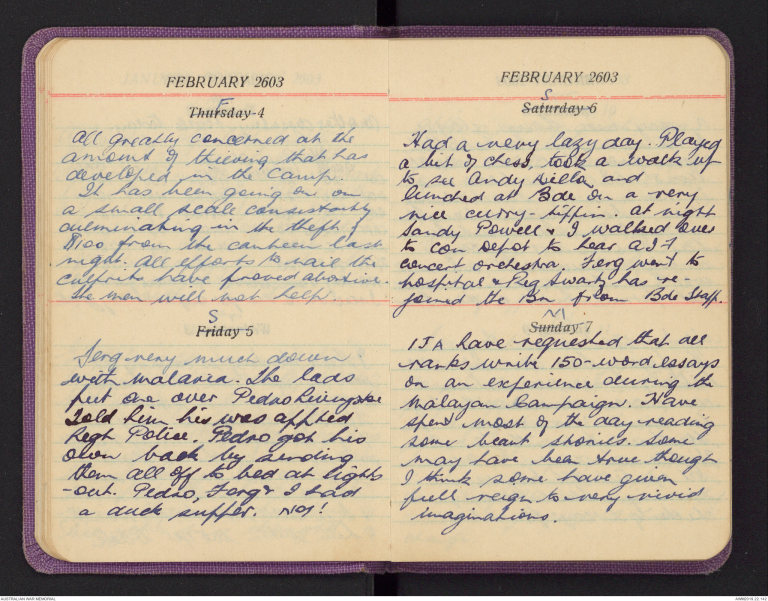 FEBRUARY 2603
F
Thursday 4
All greatly concerned at the
amount of thieving that has
developed in the camp.
It has been going on on
a small scale consistently
culminating in the theft of
$100 from the canteen last
night. All efforts to nail the
culprits have proved abortive.
The men will not help.
S
Friday 5
Ferg very much down
with malaria. The lads
put one over Pedro
Told him he was apptd
Regt Police. Pedro got his
own back by sending
them all off to bed at lights
-out. Pedro, Ferg & I had
a duck supper. NOT!
FEBRUARY 2603
S
Saturday 6
Had a very lazy day. Played
a bit of chess, took a walk up
to see Andy Dillon and
lunched at Bde on a very
nice curry-tiffin. At night
Sandy Powell & I walked over
to con Depot to hear AIF
concert orchestra. Ferg went to
hospital & Reg Swartz has re-
joined the Bn from Bde Staff.
M
Sunday 7
IJA have requested that all
ranks write 150-word essays
on an experience during the
Malayan Campaign. Have
spent most of the day reading
some beaut stories. Some
may have been true though
I think some have given
full reign to very vivid
imaginations.
AUSTRALIAN WAR MEMORIAL